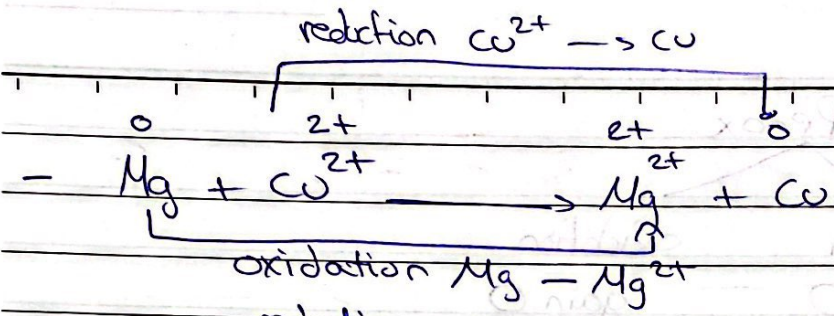 reduction Cu²⁺ → Cu
0 2+ 2+ 0
- Mg + Cu²⁺ → Mg²⁺ + Cu
oxidation Mg - Mg²⁺